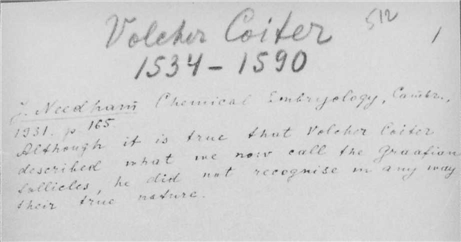 Volcher Coiter
512
1
1534 - 1590
J. Needham Chemical Embryology, Cambr.,
1931. p. 165
Although it is true that Volcher Coiter
described what we now call the graafian
follicles, he did not recognise in any way
their true nature.